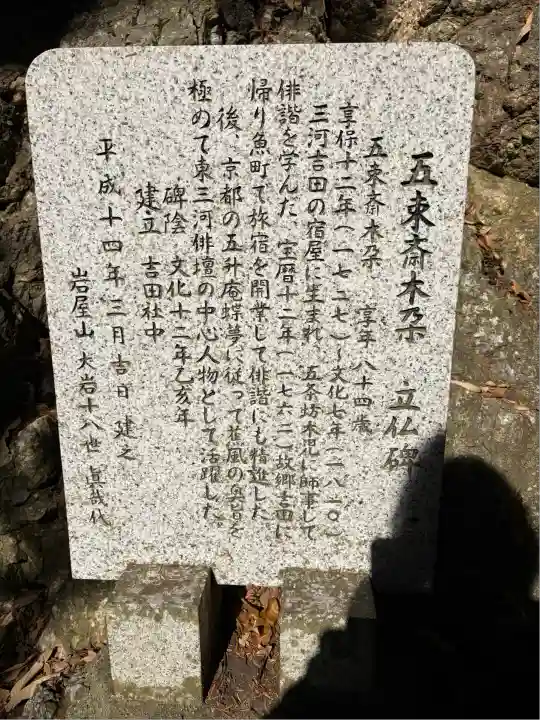 五束斎木朶 立仏碑
五束斎木朶 享年八十四歳
享保十二年(一七二七)~文化七年(一八一〇)
三河吉田の宿屋に生まれ、五条坊木児に師事して
俳諧を学んだ。宝暦十二年(一七六二)故郷吉田に
帰り魚町で旅宿を開業して俳諧にも精進した。
後、京都の五升庵蝶夢に従って蕉風の奥旨を
極めて東三河俳壇の中心人物として活躍した。
碑陰 文化十二年乙亥年
建立 吉田社中
平成十四年三月吉日 建之
岩屋山 大岩十八世 眞哉代